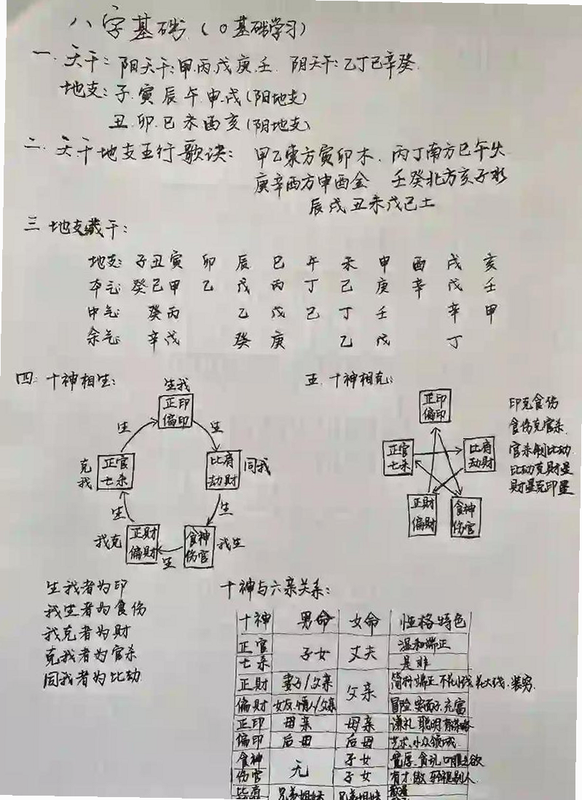 八字基础（0基础学习）
一.天干:阳天干:甲.丙.戊.庚.壬 阴天干:乙丁己辛癸.
地支:子.寅.辰.午.申.戌(阳地支)
丑.卯.巳.未.酉.亥(阴地支)
二.天干地支五行歌诀: 甲乙东方寅卯木. 丙丁南方巳午火
庚辛西方申酉金 壬癸北方亥子水
辰戌丑未戊己土
三.地支藏干:
地支:子丑寅 卯 辰 巳 午 未 申 酉 戌 亥
本气:癸己甲 乙 戊 丙 丁 己 庚 辛 戊 壬
中气: 癸丙 乙 戊 己 丁 壬 辛 甲
余气: 辛戊 癸 庚 乙 戊 丁
四.十神相生:
生我
正印
偏印
生
生
克我
正官
七杀
比肩
劫财
同我
生
生
我克
正财
偏财
生
食神
伤官
我生
五.十神相克:
正印
偏印
正官
七杀
比肩
劫财
正财
偏财
食神
伤官
印克食伤
食伤克官杀.
官杀制比劫
比劫克财星
财星克印星
生我者为印
我生者为食伤
我克者为财
克我者为官杀
同我者为比劫
十神与六亲关系:
十神 男命 女命 性格特色
正官 子女 丈夫 温和端正
七杀 是非
正财 妻子/父亲 父亲
偏财 女友,情人/父亲 冒险
正印 母亲 母亲 谦礼 聪明
偏印 后母 后母 艺术,小众领域
食神 无 子女
伤官 子女 有才
兄弟姐妹 兄弟姐妹